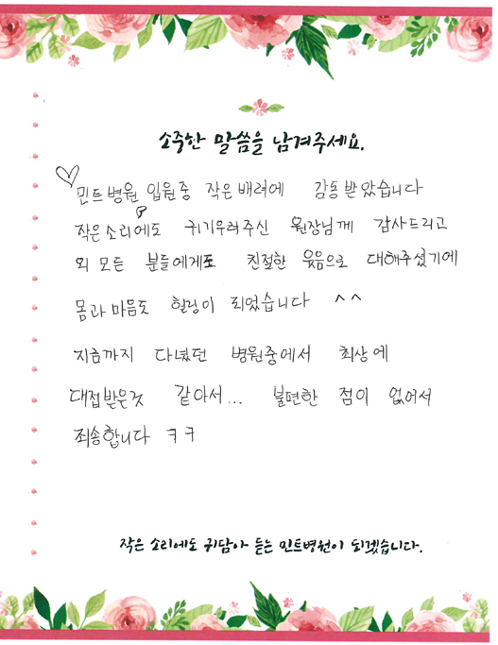 소중한 말씀을 남겨주세요.
민트병원 입원중 작은배려에 감동받았습니다
작은소리에도 귀기우려주신 원장님께 감사드리고
외 모든 분들에게도 친절한 웃음으로 대해주셨기에
몸과마음도 힐링이 되었습니다 ^^
지금까지 다녔던 병원중에서 최상에
대접받은것 같아서... 불편한 점이 없어서
죄송합니다 ㅋㅋ
작은 소리에도 귀담아 듣는 민트병원이 되겠습니다.